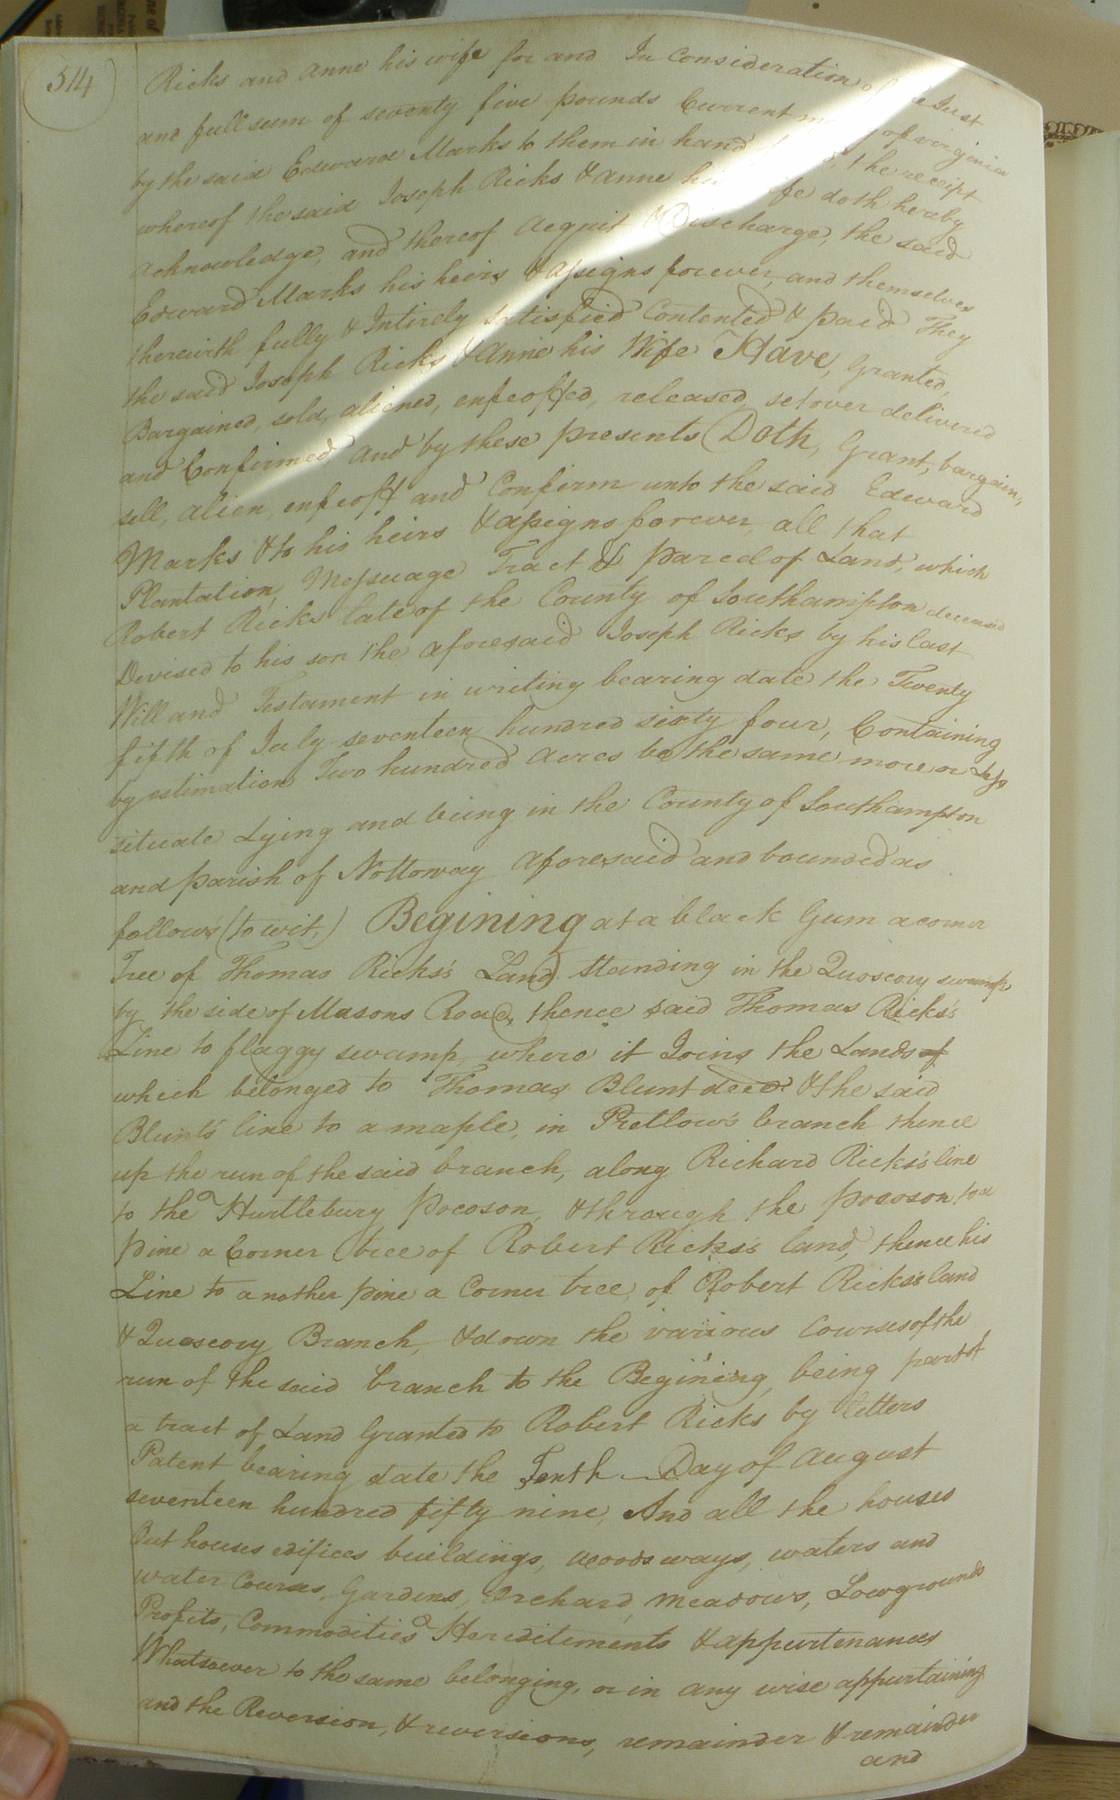 514
Ricks and Anne his wife for and In Consideration of Just
and full sum of seventy five pounds Current of virginia
by the said Edward Marks to them in hand the receipt
whereof the said Joseph Ricks & Anne his wife doth hereby
acknowledge, and thereof Acquit & Discharge, the said
Edward Marks his heirs & assigns forever, and themselves
therewith fully & Intirely Satisfied Contented & paid They
the said Joseph Ricks & Anne his Wife Have, Granted,
Bargained, sold, aliened, enfeoffed, released, setover delivered
and Confirmed And by these presents Doth, Grant, bargain,
sell, alien, enfeoff and Confirm unto the said Edward
Marks & to his heirs & assigns forever, all that
Plantation, Messuage Tract & parcel of Land, which
Robert Ricks late of the County of Southampton deceased
Devised to his son the aforesaid Joseph Ricks by his last
Will and Testament in writing bearing date the Twenty
fifth of July seventeen hundred sixty four, Containing
by estimation Two hundred Acres be the same more or Less
situate Lying and being in the County of Southampton
and parish of Nottoway aforesaid and bounded as
follows (to wit,) Begining at a black Gum a corner
Tree of Thomas Ricks's Land standing in the Quoscory swamp,
by the side of Masons Road, thence said Thomas Ricks's
Line to flaggy swamp where it Joins the Lands of
which belonged to Thomas Blunt decd & the said
Blunt's line to a maple, in Pretlow's branch thence
up the run of the said branch, along Richard Ricks's line
to the Hurtlebury Pocoson, & through the Pocoson, to a
pine a Corner tree of Robert Ricks's land, thence his
Line to another pine a Corner tree, of Robert Ricks's land
& Quoscory Branch, & down the various Courses of the
run of the said branch to the Begining, being part of
a tract of Land Granted to Robert Ricks by letters
Patent bearing date the Tenth Day of August
seventeen hundred fifty nine, And all the houses
Out houses edifices buildings, woods ways, waters and
water Courses, Gardens, Orchard, meadows, Lowgrounds
Profits, Commodities Hereditements & appurtenances
Whatsoever to the same belonging, or in any wise appurtaining
and the Reversion, & reversions, remainder & remainder
and